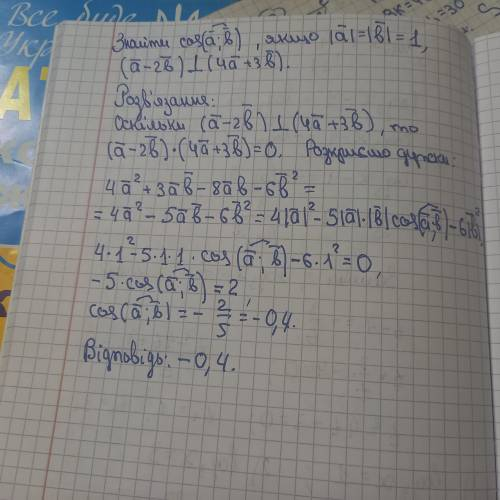 Все буде
Знайти cos(a̅;b̅), якщо |a̅|=|b̅|=1,
(a̅-2b̅)⊥(4a̅+3b̅).
Розв'язання:
Оскільки (a̅-2b̅)⊥(4a̅+3b̅), то
(a̅-2b̅)·(4a̅+3b̅)=0. Розкриємо дужки:
4a̅²+3a̅b̅-8a̅b̅-6b̅²=
=4a̅²-5a̅b̅-6b̅²=4|a̅|²-5|a̅|·|b̅|cos(a̅;b̅)-6|b̅|²,
4·1²-5·1·1·cos(a̅;b̅)-6·1²=0,
-5·cos(a̅;b̅)=2,
cos(a̅;b̅)=-2/5=-0,4.
Відповідь: -0,4.